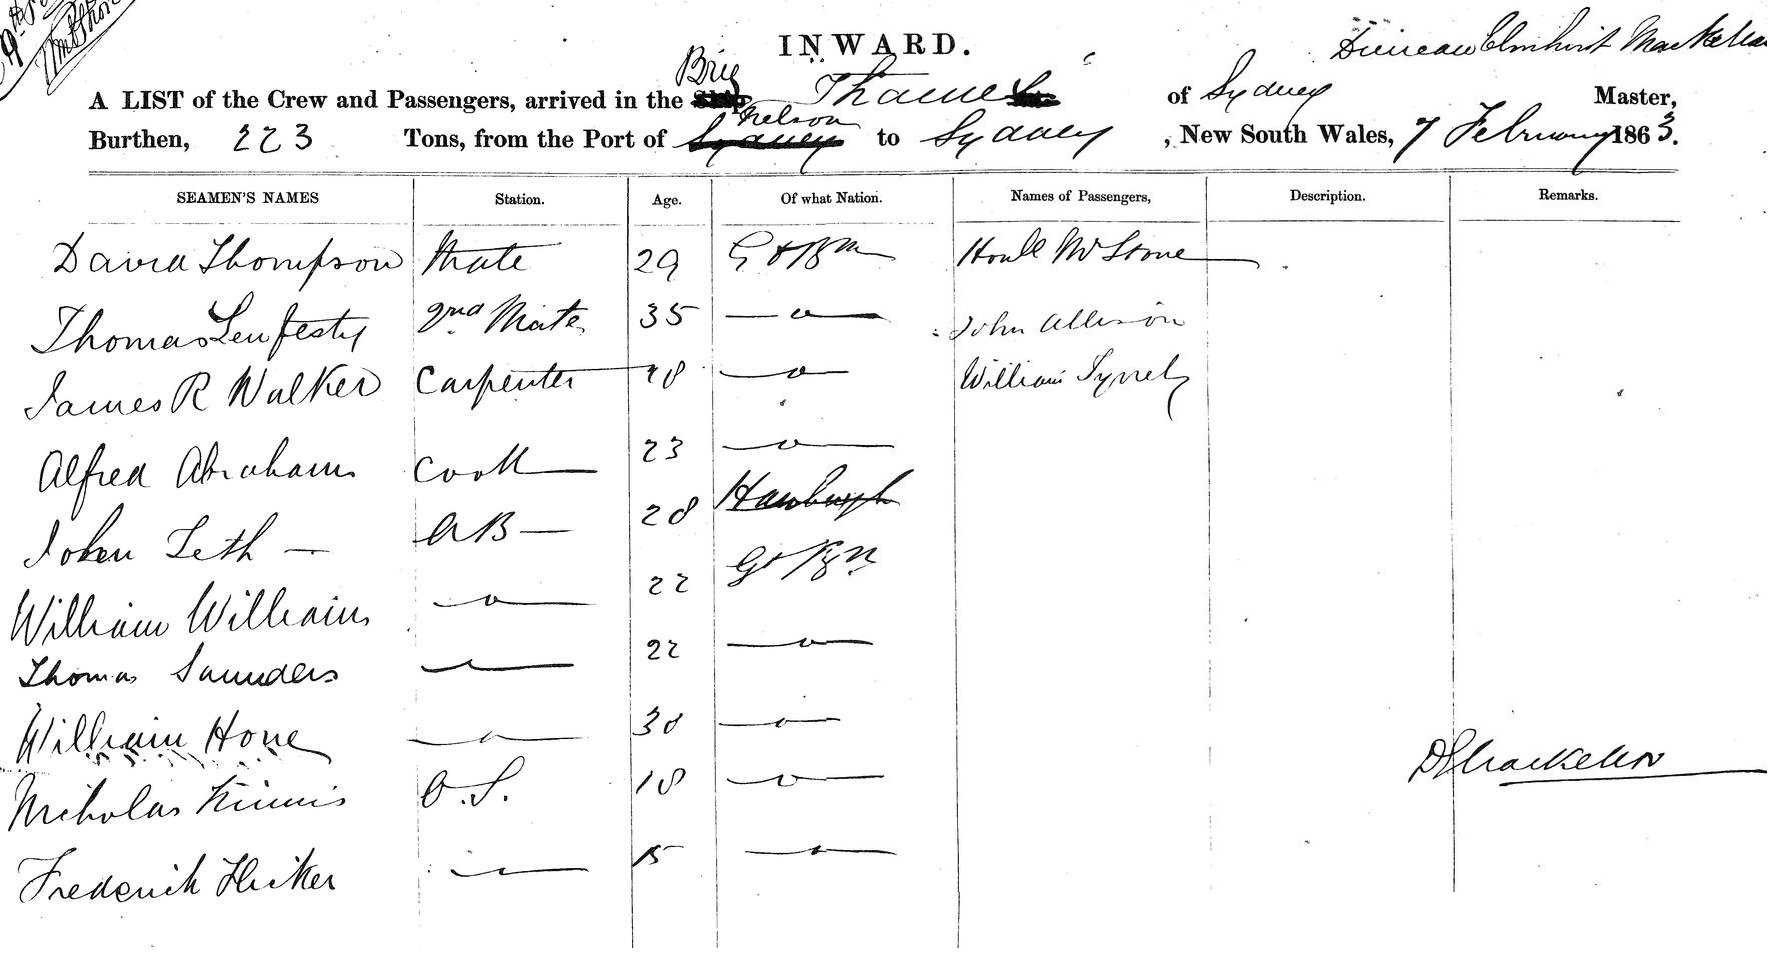 INWARD.
Brig
A LIST of the Crew and Passengers, arrived in the Ship Thame of Sydney Master,
Nelson
Burthen, 223 Tons, from the Port of Sydney to Sydney, New South Wales, 7 February 1863.
SEAMEN'S NAMES Station. Age. Of what Nation. Names of Passengers, Description. Remarks.
David Thompson Mate 29 Gt Bn
Thomas Lenfesty 2nd Mate 35 — o — John Allison
James R Walker Carpenter — o — William
Alfred Abraham Cook 23 — o —
Leth — AB — 28 Hamburgh
William Williams — o — 22 Gt Bn
Thomas Saunders 22 — o —
William Hone — o — 30 — o —
Nicholas O.S. 18 — o —
Frederick 15 — o —